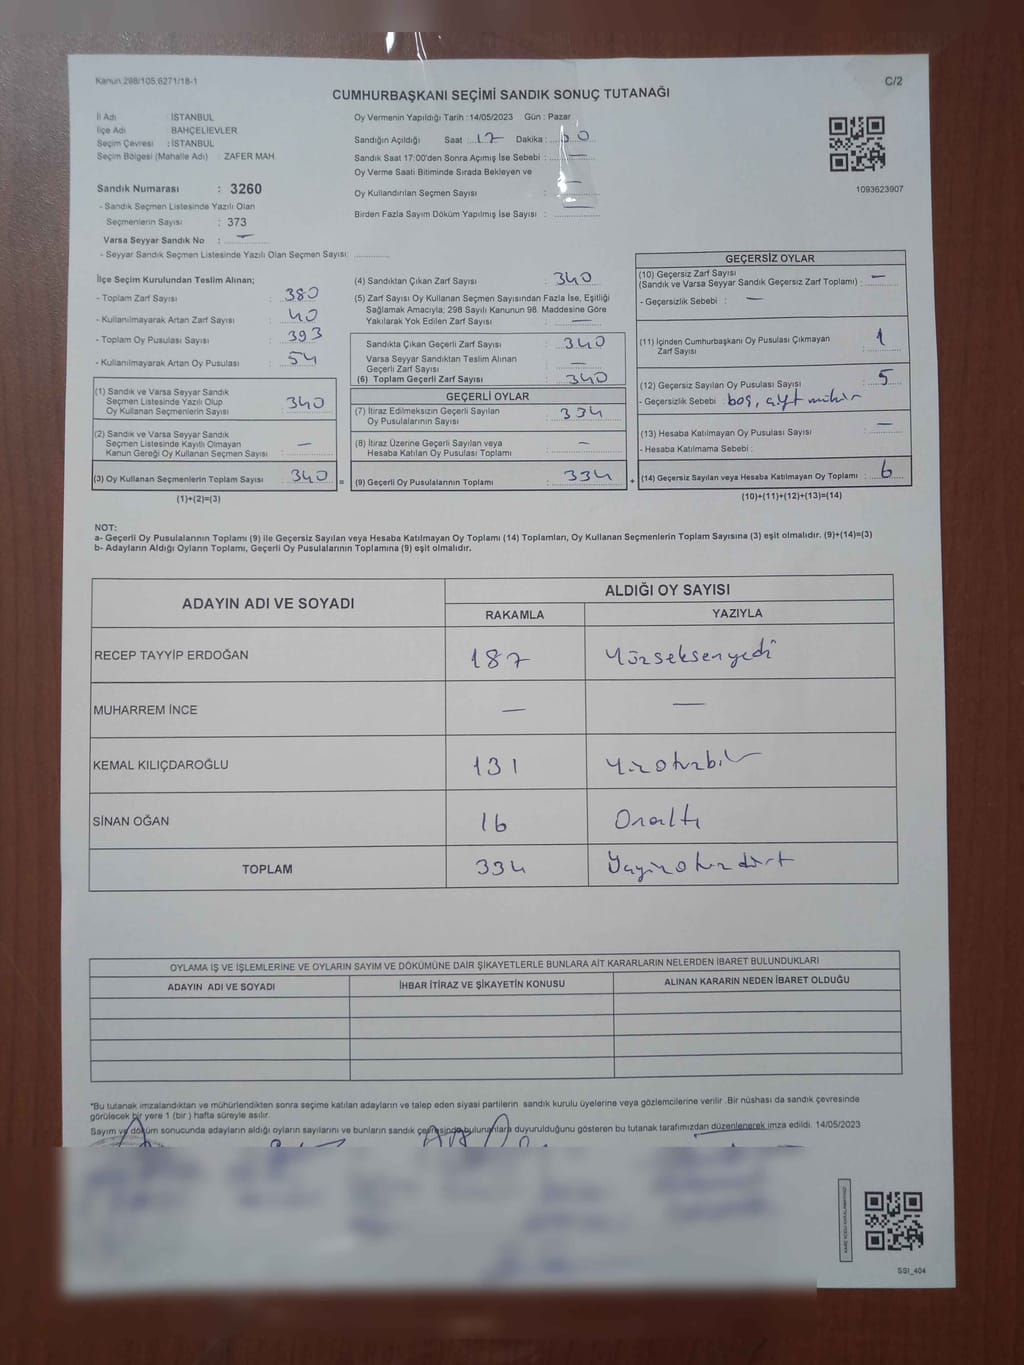 Kanun 298/105,6271/18-1
C/2
CUMHURBAŞKANI SEÇİMİ SANDIK SONUÇ TUTANAĞI
İl Adı : İSTANBUL
İlçe Adı : BAHÇELİEVLER
Seçim Çevresi : İSTANBUL
Seçim Bölgesi (Mahalle Adı) : ZAFER MAH.
Sandık Numarası : 3260
- Sandık Seçmen Listesinde Yazılı Olan
Seçmenlerin Sayısı : 373
Varsa Seyyar Sandık No : —
- Seyyar Sandık Seçmen Listesinde Yazılı Olan Seçmen Sayısı:
Oy Vermenin Yapıldığı Tarih :14/05/2023 Gün : Pazar
Sandığın Açıldığı Saat : 17 Dakika : 00
Sandık Saat 17:00'den Sonra Açımış İse Sebebi : —
Oy Verme Saati Bitiminde Sırada Bekleyen ve
Oy Kullandırılan Seçmen Sayısı : —
Birden Fazla Sayım Döküm Yapılmış İse Sayısı : —
1093623907
İlçe Seçim Kurulundan Teslim Alınan;
- Toplam Zarf Sayısı : 380
- Kullanılmayarak Artan Zarf Sayısı : 40
- Toplam Oy Pusulası Sayısı : 393
- Kullanılmayarak Artan Oy Pusulası : 54
(1) Sandık ve Varsa Seyyar Sandık
Seçmen Listesinde Yazılı Olup
Oy Kullanan Seçmenlerin Sayısı : 340
(2) Sandık ve Varsa Seyyar Sandık
Seçmen Listesinde Kayıtlı Olmayan
Kanun Gereği Oy Kullanan Seçmen Sayısı : —
(3) Oy Kullanan Seçmenlerin Toplam Sayısı : 340
(1)+(2)=(3)
(4) Sandıktan Çıkan Zarf Sayısı : 340
(5) Zarf Sayısı Oy Kullanan Seçmen Sayısından Fazla İse, Eşitliği
Sağlamak Amacıyla, 298 Sayılı Kanunun 98. Maddesine Göre
Yakılarak Yok Edilen Zarf Sayısı : —
Sandıkta Çıkan Geçerli Zarf Sayısı : 340
Varsa Seyyar Sandıktan Teslim Alınan
Geçerli Zarf Sayısı : —
(6) Toplam Geçerli Zarf Sayısı : 340
GEÇERLİ OYLAR
(7) İtiraz Edilmeksizin Geçerli Sayılan
Oy Pusulalarının Sayısı : 334
(8) İtiraz Üzerine Geçerli Sayılan veya
Hesaba Katılan Oy Pusulası Toplamı : —
= (9) Geçerli Oy Pusulalarının Toplamı : 334
GEÇERSİZ OYLAR
(10) Geçersiz Zarf Sayısı
(Sandık ve Varsa Seyyar Sandık Geçersiz Zarf Toplamı) : —
- Geçersizlik Sebebi : —
(11) İçinden Cumhurbaşkanı Oy Pusulası Çıkmayan
Zarf Sayısı : 1
(12) Geçersiz Sayılan Oy Pusulası Sayısı : 5
- Geçersizlik Sebebi : boş, çift mühür
(13) Hesaba Katılmayan Oy Pusulası Sayısı : —
- Hesaba Katılmama Sebebi :
+ (14) Geçersiz Sayılan veya Hesaba Katılmayan Oy Toplamı : 6
(10)+(11)+(12)+(13)=(14)
NOT:
a- Geçerli Oy Pusulalarının Toplamı (9) ile Geçersiz Sayılan veya Hesaba Katılmayan Oy Toplamı (14) Toplamları, Oy Kullanan Seçmenlerin Toplam Sayısına (3) eşit olmalıdır. (9)+(14)=(3)
b- Adayların Aldığı Oyların Toplamı, Geçerli Oy Pusulalarının Toplamına (9) eşit olmalıdır.
ADAYIN ADI VE SOYADI ALDIĞI OY SAYISI
RAKAMLA YAZIYLA
RECEP TAYYİP ERDOĞAN 187 Yüzseksenyedi
MUHARREM İNCE — —
KEMAL KILIÇDAROĞLU 131 Yüzotuzbir
SİNAN OĞAN 16 Onaltı
TOPLAM 334 Üçyüzotuzdört
OYLAMA İŞ VE İŞLEMLERİNE VE OYLARIN SAYIM VE DÖKÜMÜNE DAİR ŞİKAYETLERLE BUNLARA AİT KARARLARIN NELERDEN İBARET BULUNDUKLARI
ADAYIN ADI VE SOYADI İHBAR İTİRAZ VE ŞİKAYETİN KONUSU ALINAN KARARIN NEDEN İBARET OLDUĞU
*Bu tutanak imzalandıktan ve mühürlendikten sonra seçime katılan adayların ve talep eden siyasi partilerin sandık kurulu üyelerine veya gözlemcilerine verilir .Bir nüshası da sandık çevresinde
görülecek bir yere 1 (bir ) hafta süreyle asılır.
Sayım ve döküm sonucunda adayların aldığı oyların sayılarını ve bunların sandık çevresinde bulunanlara duyurulduğunu gösteren bu tutanak tarafımızdan düzenlenerek imza edildi. 14/05/2023
SSI_404